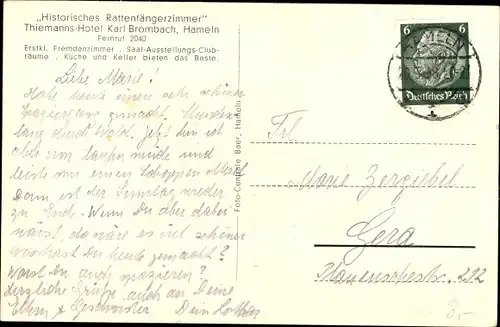 „Historisches Rattenfängerzimmer"
Thiemanns-Hotel Karl Brombach, Hameln
Fernruf 2040
Erstkl. Fremdenzimmer . Saal-Ausstellungs-Club-
räume . Küche und Keller bieten das Beste.
Liebe Marie!
Habe heute einen sehr schönen
Spaziergang gemacht. Stunden-
lang durch Wald. Jetzt bin ich
aber vom laufen müde und
leiste mir einen Schoppen Most.
Dann ist der Sonntag wieder
zu Ende. Wenn Du aber dabei
wärst, da wäre es viel schöner.
Was hast Du heute gemacht?
Warst Du auch spazieren?
Herzliche Grüße auch an Deine
Eltern u. Geschwister Dein Lothar
Foto-Centrale Baer, Hameln
HAMELN
6 6
Deutsches Reich
Frl.
Marie Zerzichel
Gera
Plauenschestr. 212
8,-